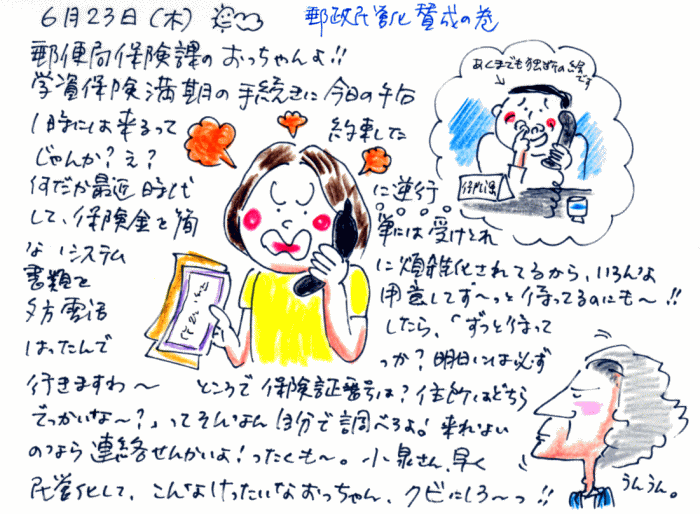 6月23日(木)
郵政民営化賛成の巻
郵便局保険課のおっちゃんよ!!
学資保険満期の手続きに今日の午后
1時には来るって
約束した
じゃんか?え?
何だか最近時代
に逆行
して、保険金を簡
単には受けとれ
ないシステム
に煩雑化されてるから、いろんな
書類を
用意してず〜っと待ってるのにも〜!!
夕方電話
したら、「ずっと待って
はったんで
っか?明日には必ず
行きますわ〜
ところで保険証番号は?住所はどちら
でっかいな〜?」ってそんなん自分で調べろよ!来れない
のなら連絡せんかいよ!ったくも〜。小泉さん、早く
民営化して、こんなけったいなおっちゃん、クビにしろ〜っ!!
あくまでも独断の絵です
保険課
うんうん。